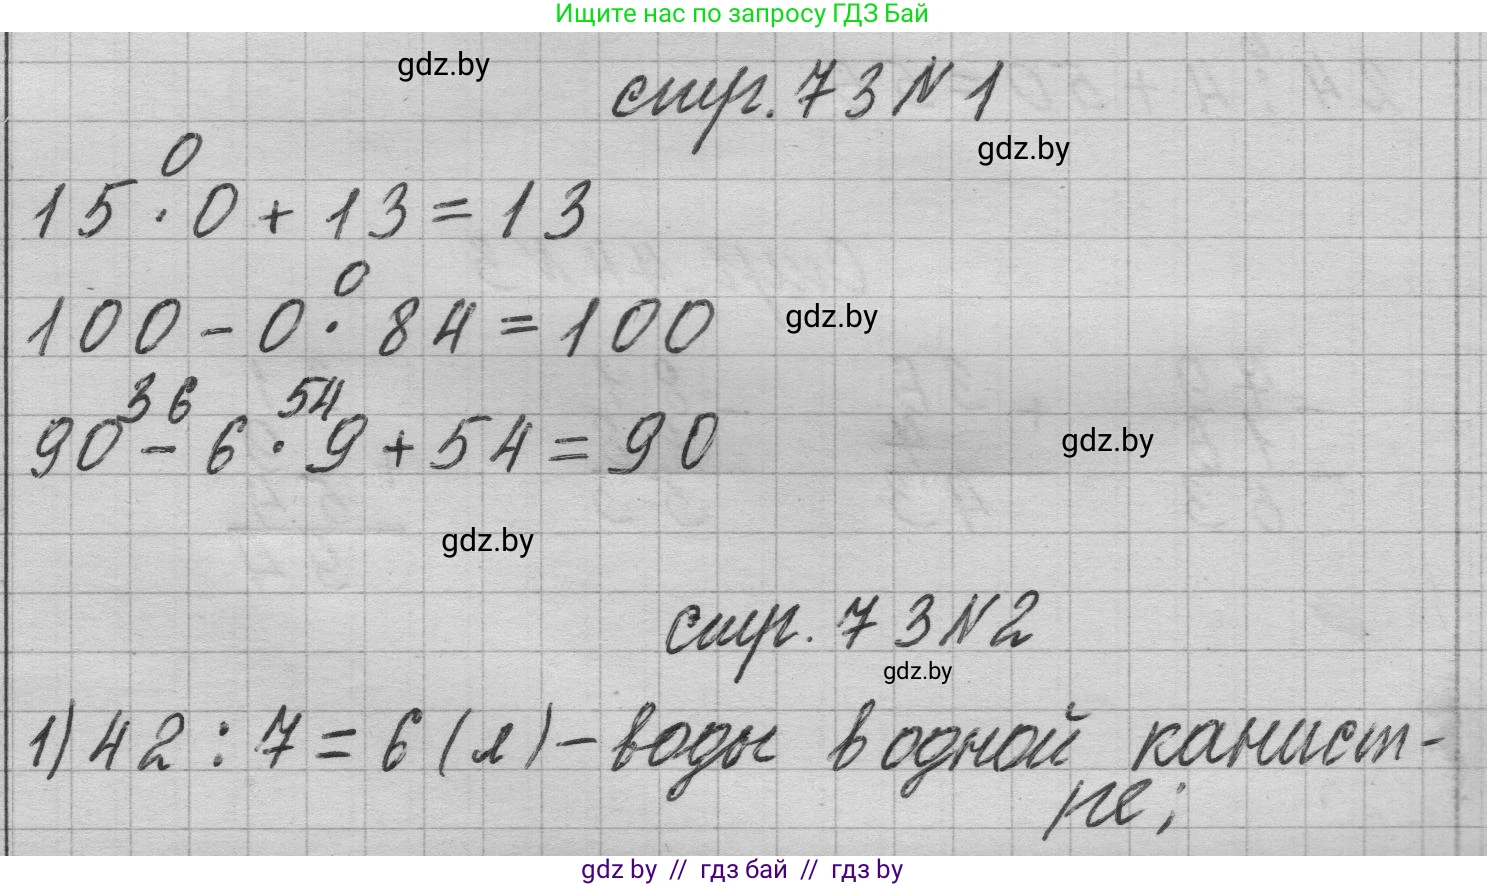 Ищите нас по запросу ГДЗ Бай
gdz.by
стр. 73 N 1
gdz.by
0
15 · 0 + 13 = 13
0
100 - 0 · 84 = 100
gdz.by
36 54
90 - 6 · 9 + 54 = 90
gdz.by
gdz.by
стр. 73 N 2
gdz.by
1) 42 : 7 = 6 (л) - воды в одной канист-
ре;
gdz by // гдз бай // гдз by